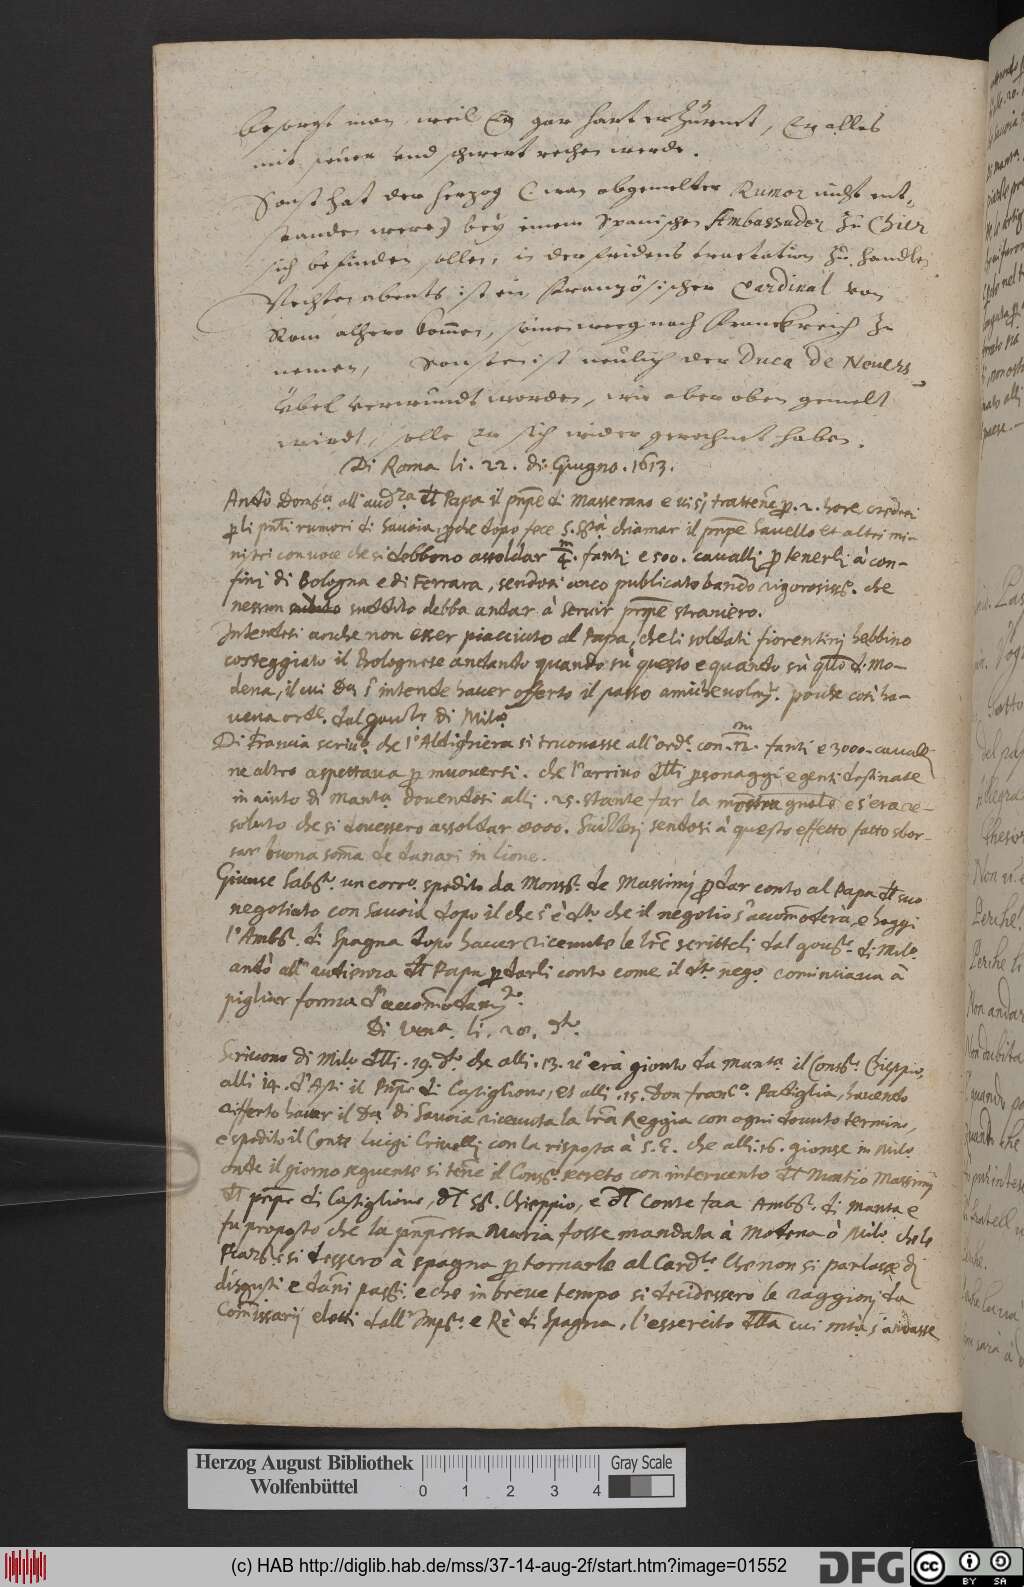 besorgt man weil Er gar hart erzürnet, Er alles
mit feuer und schwert rechen werde.
Sonst hat der herzog (: wan obgemelter Rumor nicht ent„
standen were) bey einem Spanischen Ambassador zu Chier
sich befinden sollen, in der fridens tractation zu handlen
Nechten abents ist ein französischer Cardinal von
Rom alhero kommen, seinen weeg nach Franckreich zu
nemen, Sonsten ist neulich der Duca de Nevers
übel verwundt worden, wie aber oben gemelt
wirdt, solle Er sich wider gerechnet haben.
Di Roma li. 22. di Giugno. 1613.
Andò all' audza del Papa il prnpe di Masserano e visi trattenne pr. 2. hore credesi
p li pnti rumori di Savoia, poiche dopo fece S. Sta chiamar il prnpe Savello et altri mi-
nistri con voce che si debbono assoldar 4/m. fanti e 500. cavalli p tenerli à con-
fini di Bologna e di Ferrara, sendosi anco publicato bando rigorosiss.o che
nessun suddito debba andar à servir prnpe straniero.
Intendesi anche non esser piacciuto al Papa, che li soldati fiorentini habbino
costeggiato il Bolognese andando quando sù questo e quando sù qllo di Mo-
dena, il cui Da s' intende haver offerto il passo amichevolmte. poiche così ha-
veva orde. dal govre di Milo
Di Francia scrivo. che l'Aldighiera si trovasse all' orde. con 12/m. fanti e 3000. cavalli
ne altro aspettava p muoversi. che l'arrivo delli psonaggi e genti destinate
in aiuto di Manta dovendosi alli .25. stante far la mostra gnale e s'era re-
soluto che si dovessero assoldar 8000. Suizzeri sendosi à questo effetto fatto sbor-
sar buona soma de danari in lione.
Giunse Sabto. un corro. spedito da Monsr. de Massimi p dar conto al Papa del suo
negotiato con Savoia dopo il che s' è dto che il negotio s' accomoderà, e hoggi
l' Ambr. di Spagna dopo haver ricevute le lre scritteli dal govre. di Milo.
andò all' audienza del Papa p darli conto come il do nego. cominciava à
pigliar forma d' accomodamto.
Di Vena. li. 28. do.
Scrivono di Milo delli .19. do che alli .13. v' era gionto da Manta il Consr. Chieppio,
alli 14. d'Asti il Prnpe di Castiglione, et alli .15. Don Franco. Pastiglia, havendo
riferto haver il Da di Savoia ricevuta la lra Reggia con ogni dovuto termine,
e spedito il Conte Luigi Crivelli con la risposta à S. E. che alli .16. gionse in Milo
onde il giorno seguente si tene il Conso secreto con intervento del Nuntio Massimi
del prnpe di Castiglione, del Sr. Chieppio, e del Conte Ambr. di Manta e
fu proposto che la prnpessa Maria fosse mandata à Modena ò Milo. che le
Piazze si dessero à Spagna p tornarle al Cardle Che non si parlasse di
disgusti e dani passti. e che in breve tempo si decidessero le raggioni da
Comissarij eletti dall' Impre. e Rè di Spagna, l'essercito della cui mtà s' andasse
Herzog August Bibliothek
Wolfenbüttel
0 1 2 3 4
Gray Scale
(c) HAB http://diglib.hab.de/mss/37-14-aug-2f/start.htm?image=01552
DFG
cc BY SA